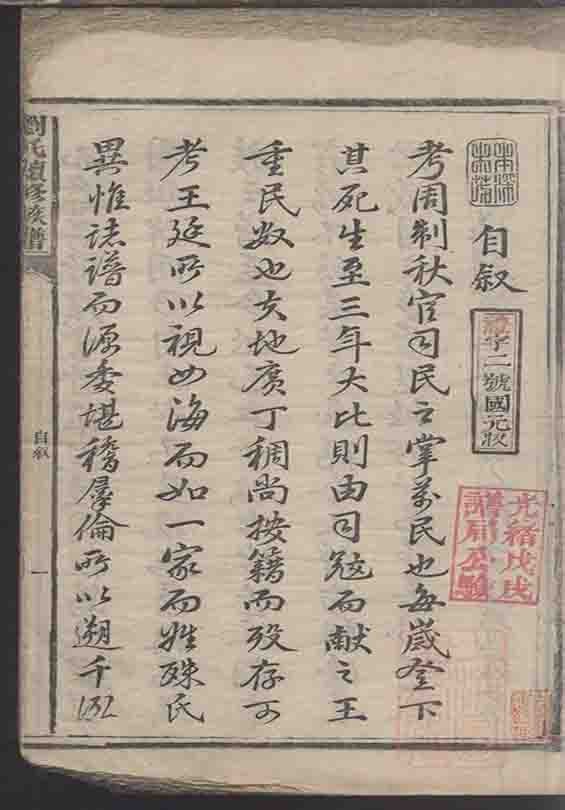 本深末茂
自叙
字二號國元收
光緒戊戌
譜局公驗
考周制秋官司民之掌萬民也每歲登下
其死生至三年大比則由司寇而献之王
重民数也夫地廣丁稠尚按籍而歿存可
考王廷所以視四海而如一家而姓殊氏
異惟誌譜而源委堪稽羣倫所以遡千
劉氏續修族譜
自叙
一